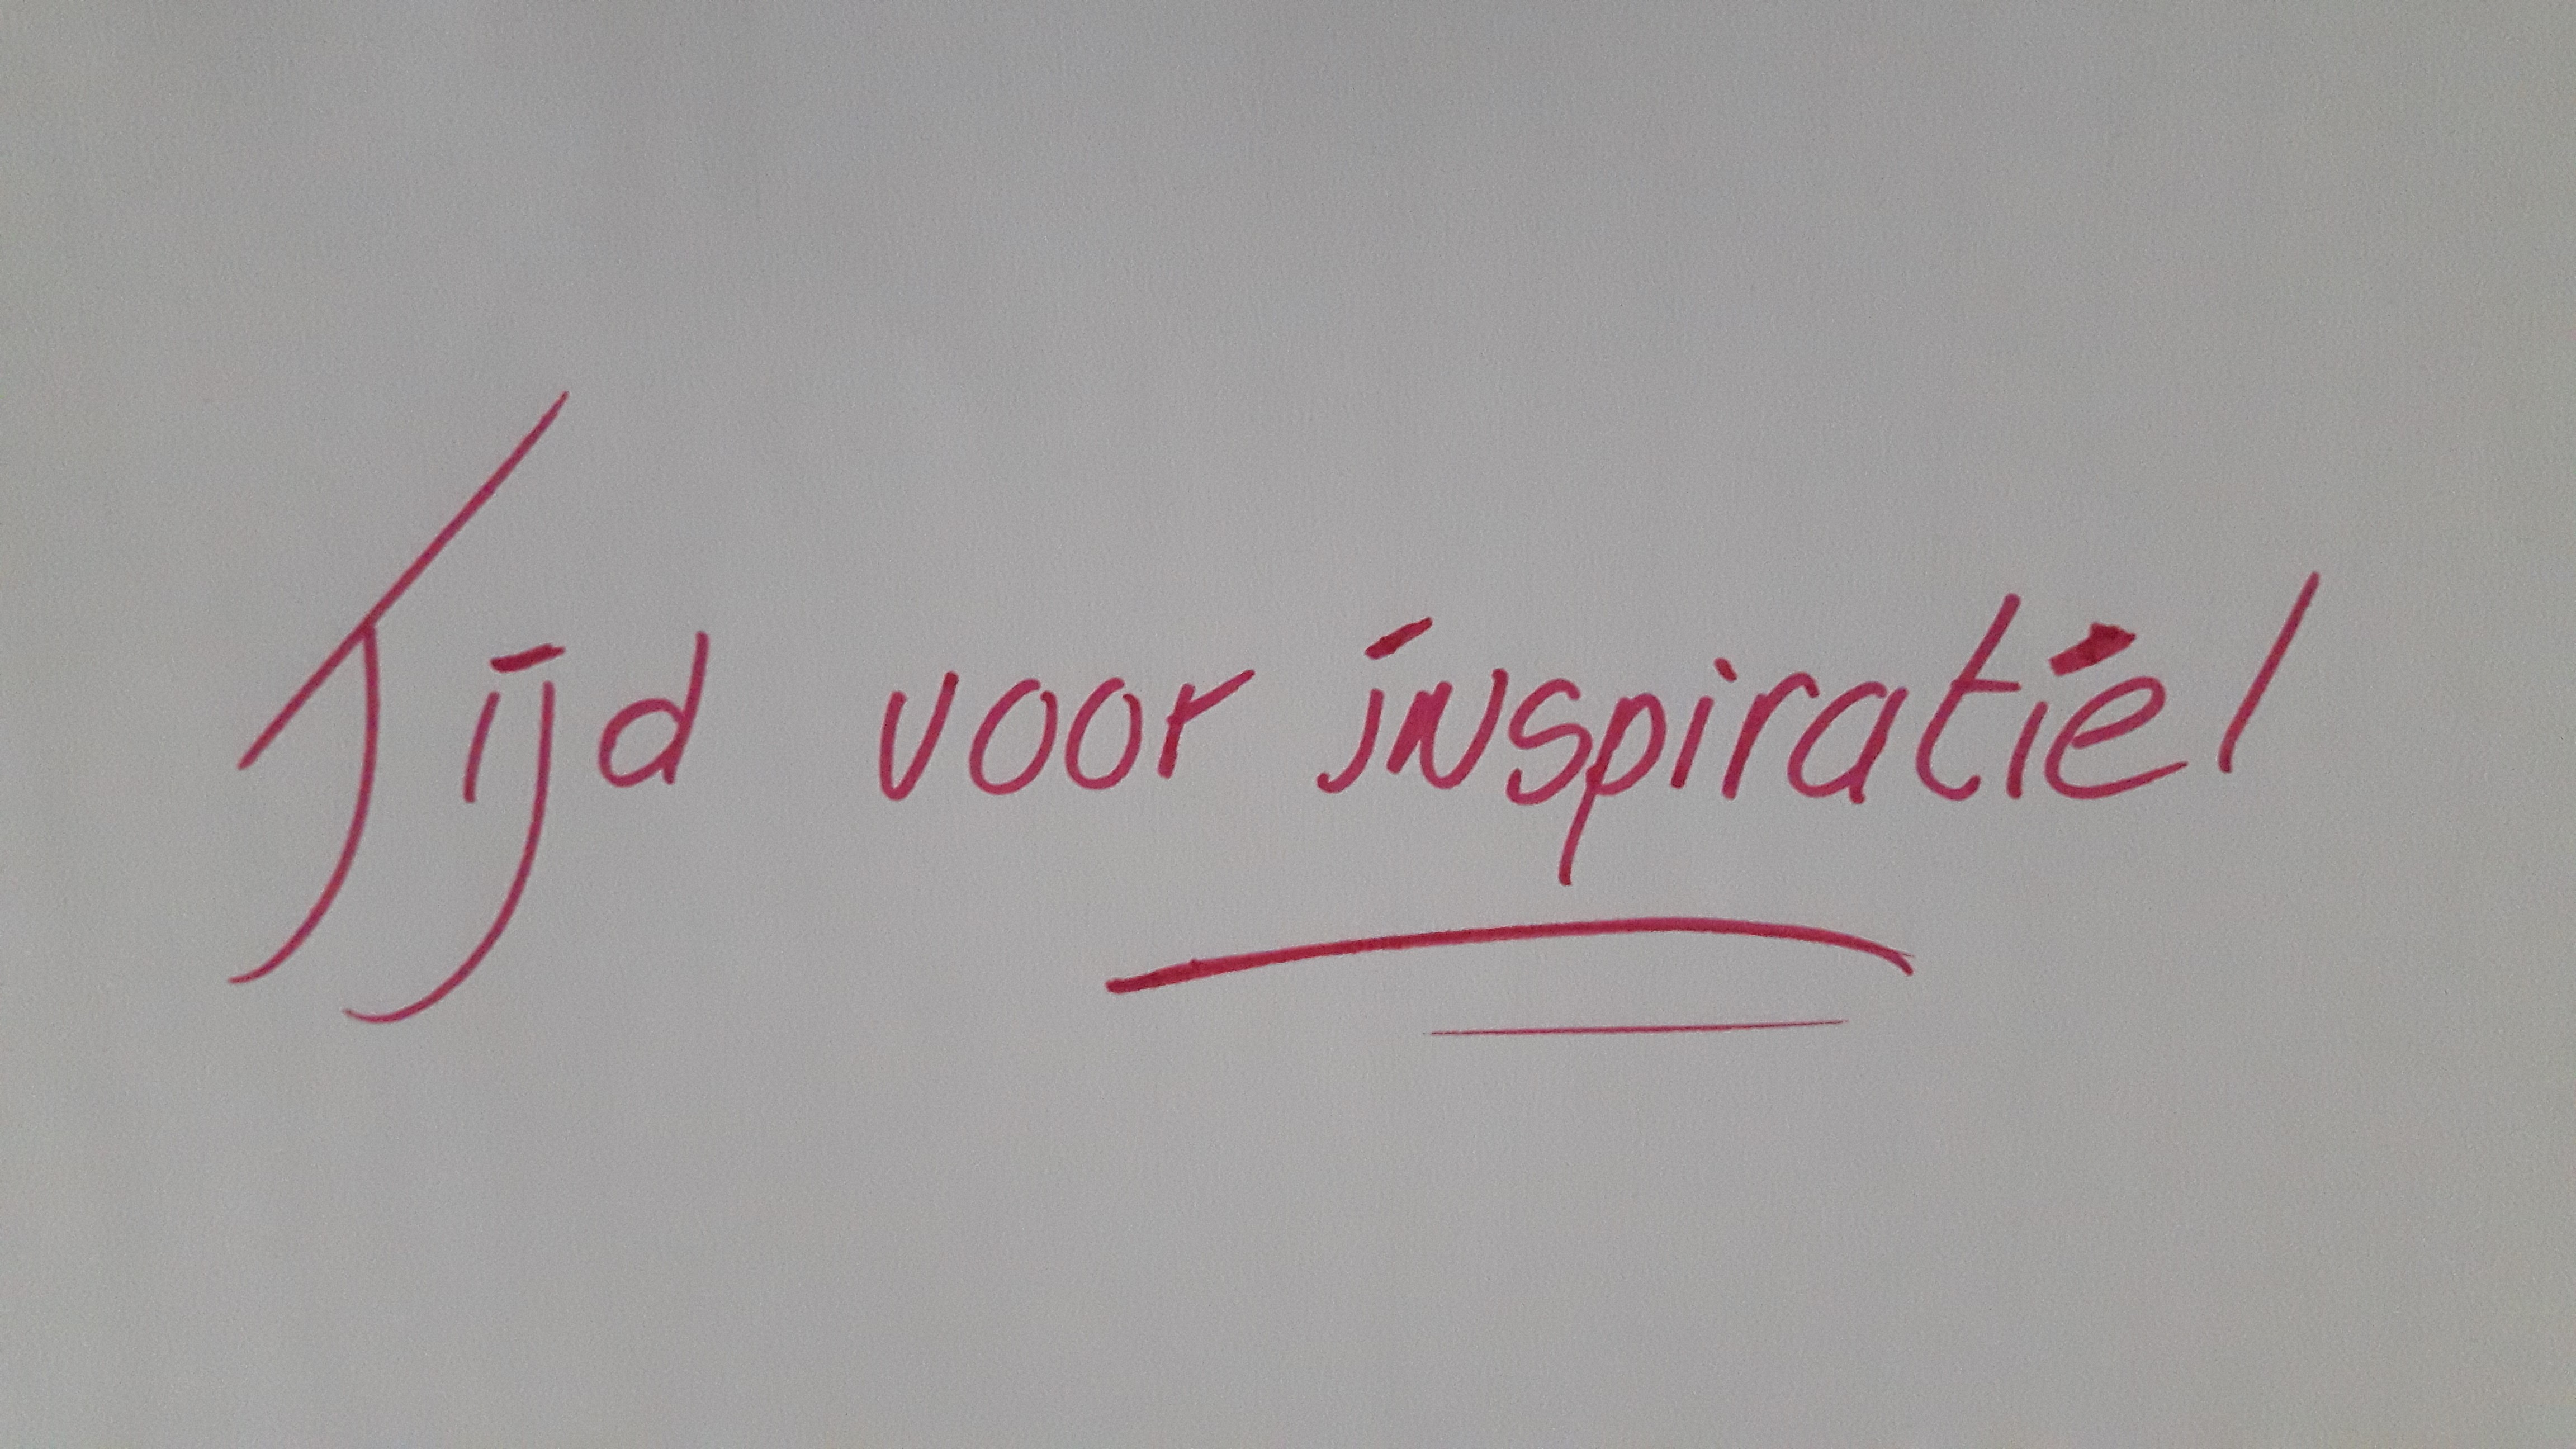 Tijd voor inspiratie!